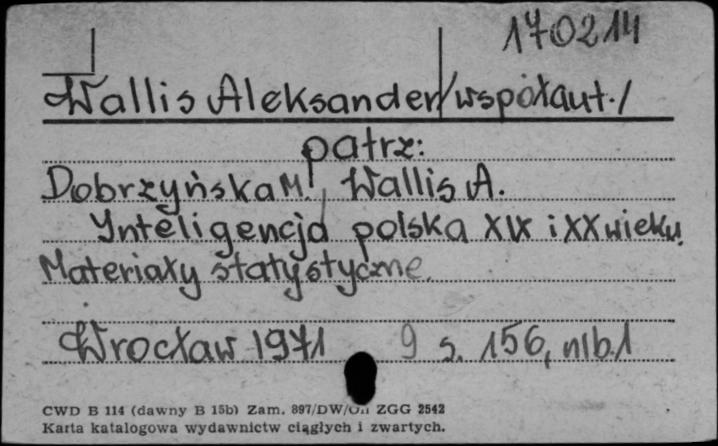 170214
Wallis Aleksander /współaut./
patrz:
Dobrzyńska M., Wallis A.
Ynteligencja polska XIX i XX wieku.
Materiały statystyczne.
Wrocław 1971 9 s. 156, nlb. 1
CWD B 114 (dawny B 15b) Zam. 897/DW/ ZGG 2542
Karta katalogowa wydawnictw ciągłych i zwartych.